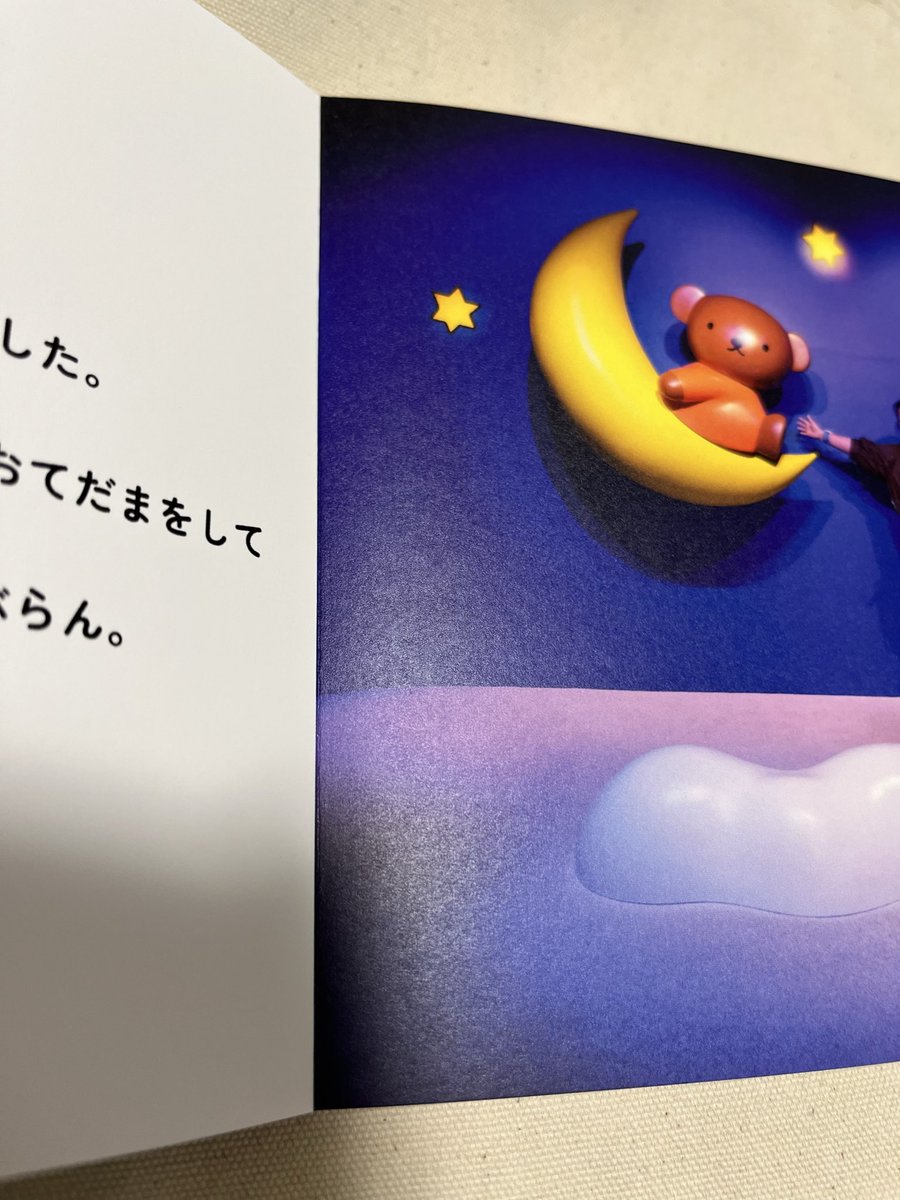 した。
おてだまをして
らん。